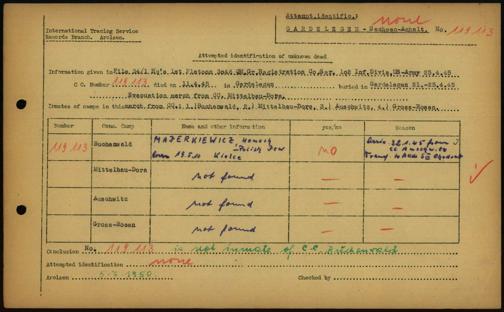 International Tracing Service
Records Branch, Arolsen.
Attempt.identific.: none
GARDELEGEN - Sachsen-Anhalt. No. 119113
Attempted identification of unknown dead
Information given in File 24/1 Hq's 1st Platoon 3048 QM.Gr.Registration Co.Ser. 102 Inf.Divis.US-Army 25.4.45
C C Number 119 113 died on 11.4.45 in Gardelegen buried in Gardelegen 21.-25.4.45
Evacuation march from CC. Mittelbau-Dora.
Inmates of camps in this march from CC.: 1.)Buchenwald, 2.) Mittelbau-Dora, 3.) Auschwitz, 4.) Gross-Rosen.
Number Conc. Camp Name and other information yes/no Reason
119 113 Buchenwald MAZERKIEWICZ, Henoch - Polish Jew born 19.5.10 Kielce NO 22.1.45 from CC Auschwitz
Mittelbau-Dora not found —
Auschwitz not found — —
Gross-Rosen not found — —
Conclusion No. 119 113 is not inmate of C.C. Buchenwald
Attempted identification none
Arolsen 1950 Checked by